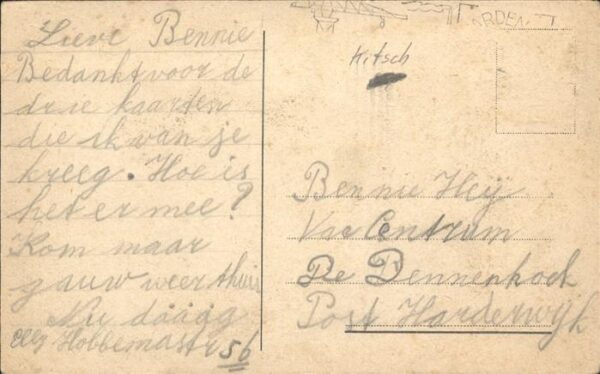 Lieve Bennie
Bedankt voor de
drie kaarten
die ik van je
kreeg. Hoe is
het er mee?
Kom maar
gauw weer thuis
Nu dááág
Hobbemastr 56
Kitsch
Bennie Heij
Vac Centrum
De Dennenhoek
Post Harderwijk